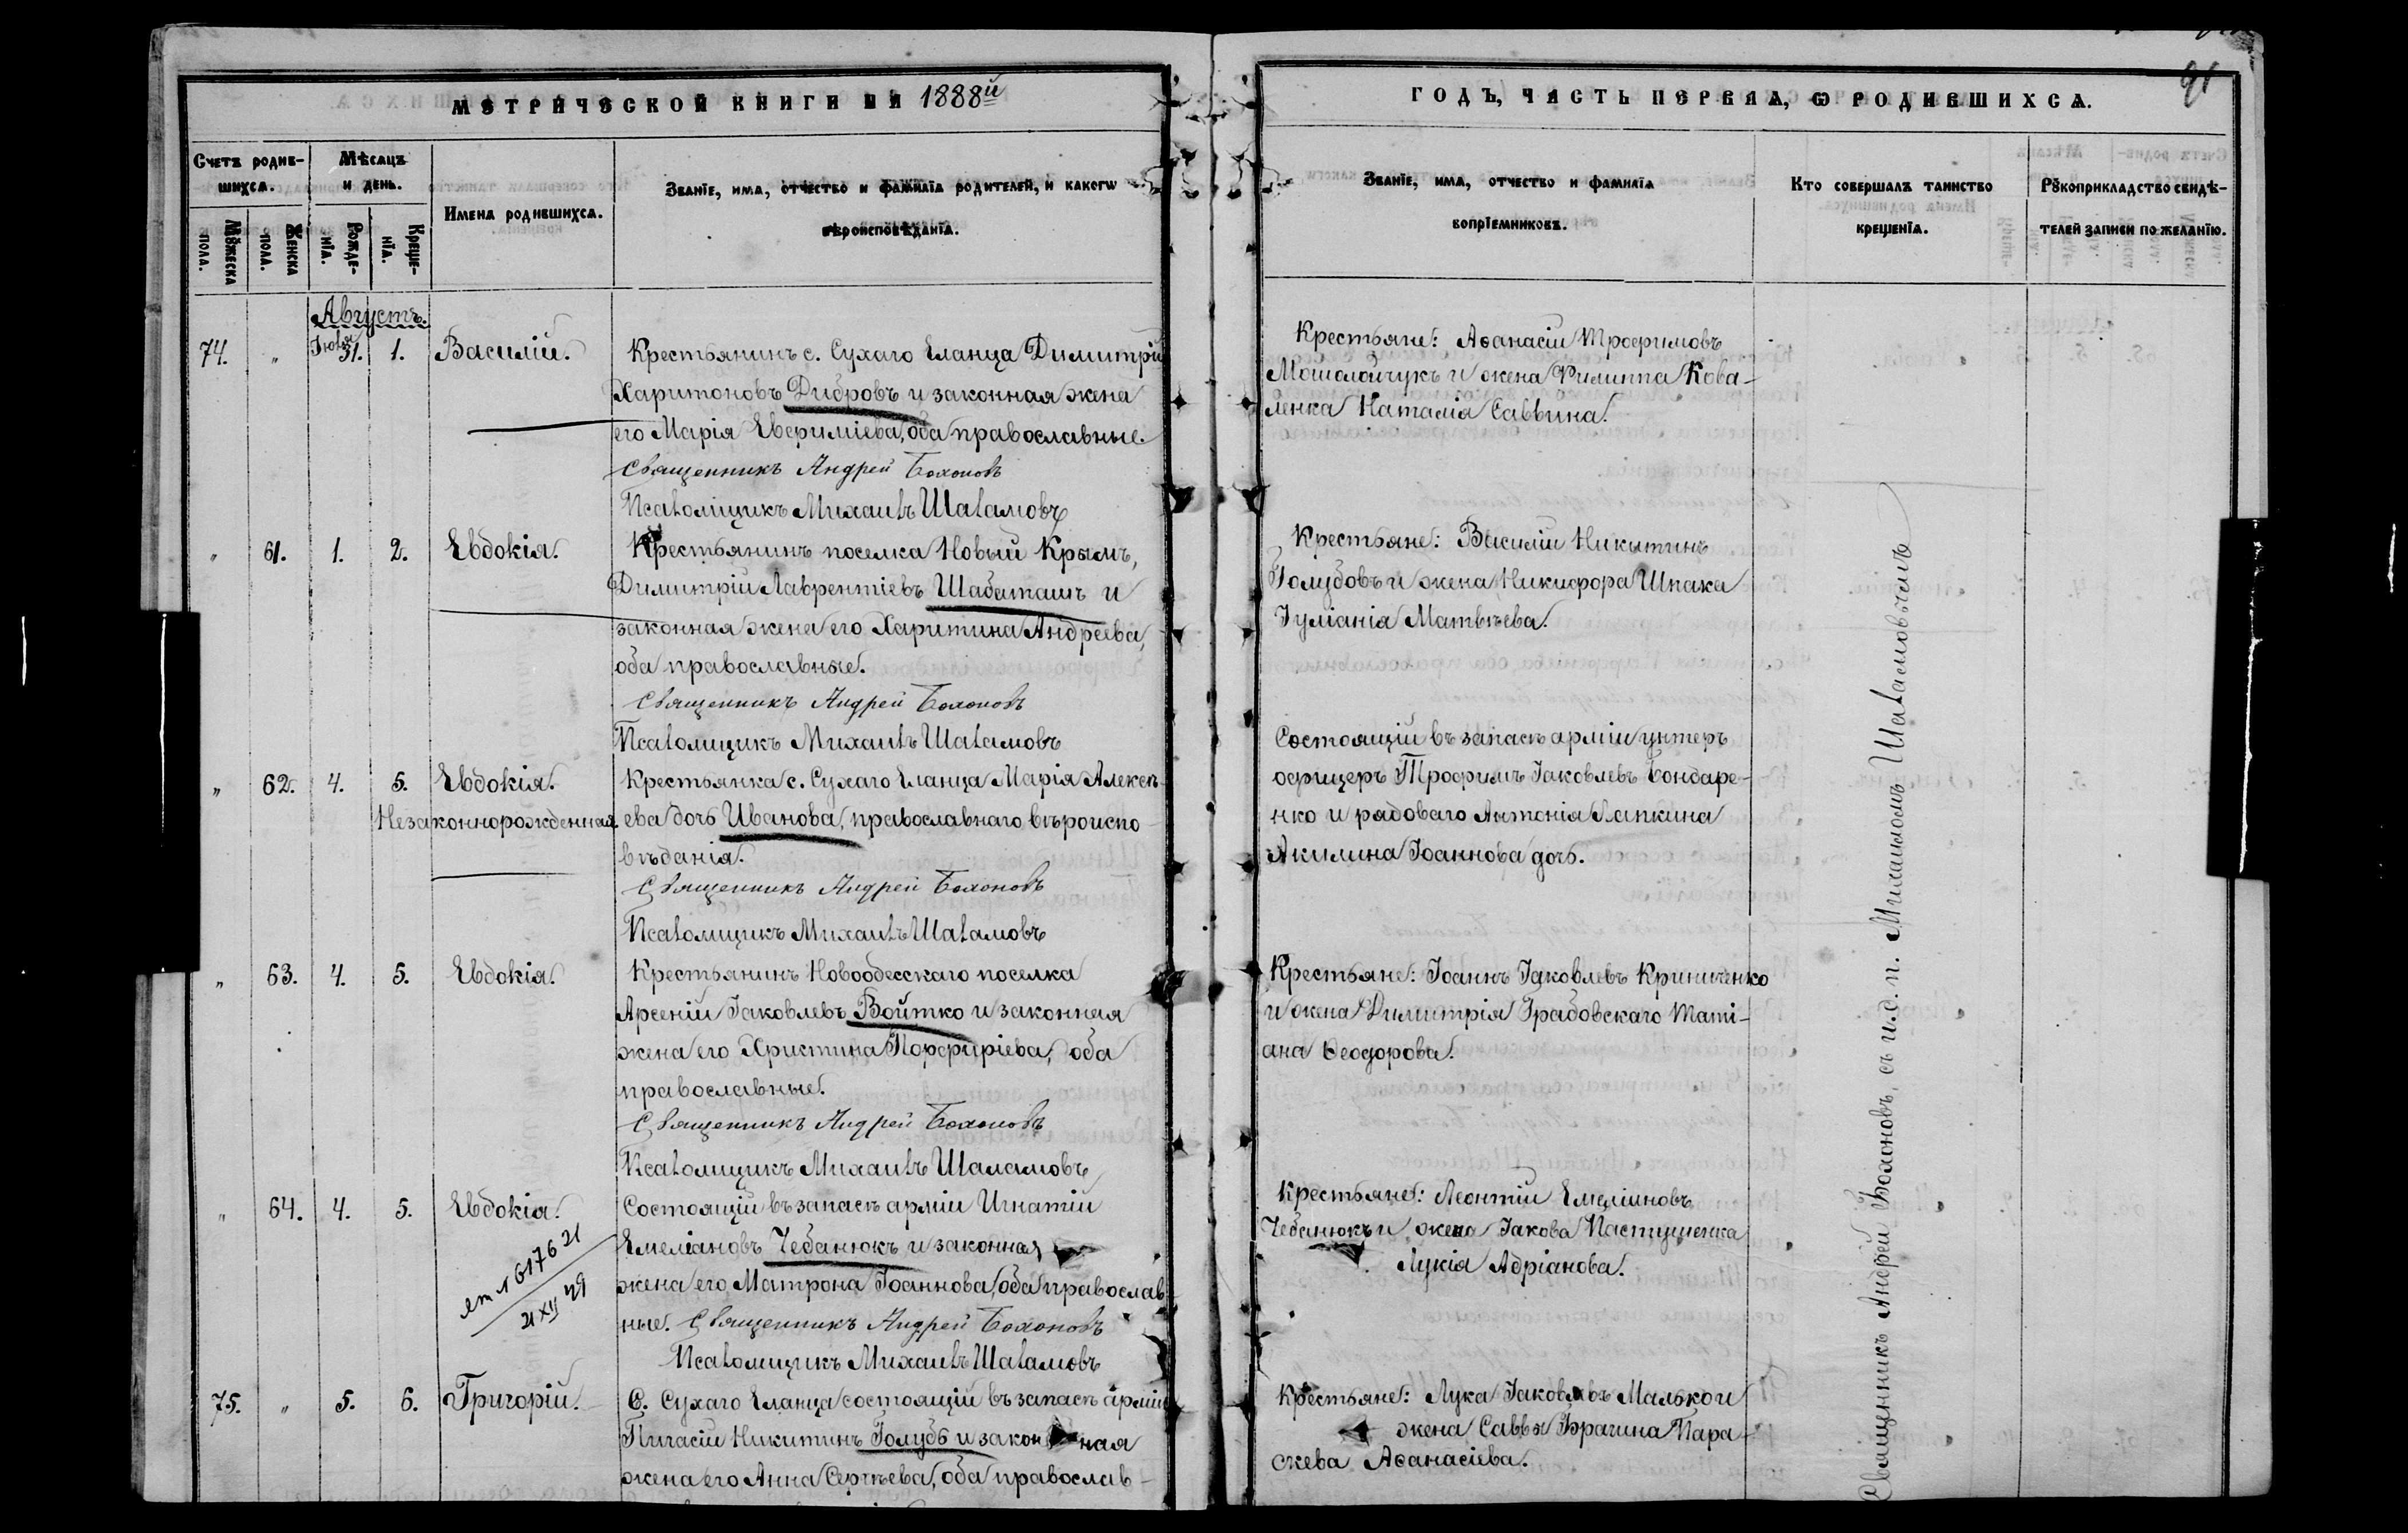 МЕТРИЧЕСКОЙ КНИГИ НА 1888й
Счетъ родив-
шихся.
Мѣсяцъ
и день.
Имена родившихся.
Званїе, имя, отчество и фамилїя родителей, и какогѡ
вѣроисповѣданїя.
Мꙋжеска
пола.
Женска
пола.
Рожде-
нїя.
Креще-
нїя.
Августъ.
74. " Іюля 31. 1. Василій. Крестьянинъ с. Сухаго Еланца Димитрій
Харитоновъ Дибровъ и законная жена
его Марія Евфиміева, оба православные.
Священникъ Андрей Бохоновъ
Псаломщикъ Михаилъ Шаламовъ
" 61. 1. 2. Евдокія. Крестьянинъ поселка Новый Крымъ,
Димитрій Лаврентіевъ Шабаташъ и
законная жена его Харитина Андреева,
оба православные.
Священникъ Андрей Бохоновъ
Псаломщикъ Михаилъ Шаламовъ
" 62. 4. 5. Евдокія. Крестьянка с. Сухаго Еланца Марія Алексѣ-
Незаконнорожденная. ева дочь Иванова, православнаго вѣроиспо-
вѣданія.
Священникъ Андрей Бохоновъ
Псаломщикъ Михаилъ Шаламовъ
" 63. 4. 5. Евдокія. Крестьянинъ Новоодесскаго поселка
Арсеній Іаковлевъ Войтко и законная
жена его Христина Порфиріева, оба
православные.
Священникъ Андрей Бохоновъ
Псаломщикъ Михаилъ Шаламовъ
" 64. 4. 5. Евдокія. Состоящій въ запасѣ арміи Игнатій
Емеліановъ Чебанюкъ и законная
жена его Матрона Іоаннова, оба православ-
ные. Священникъ Андрей Бохоновъ
Псаломщикъ Михаилъ Шаламовъ
617621
21 XII 49
75. " 5. 6. Григорій. С. Сухаго Еланца состоящій въ запасѣ арміи
Пигасій Никитинъ Голубъ и законная
жена его Анна Сергѣева, оба православ-
ГОДЪ, ЧАСТЬ ПЕРВАЯ, Ѡ РОДИВШИХСЯ.
91
Званїе, имя, отчество и фамилїя
воспрїемниковъ.
Кто совершалъ таинство
крещенїя.
Рꙋкоприкладство свидѣ-
телей записи по желанїю.
Крестьяне: Аѳанасій Трофимовъ
и жена Филиппа Кова-
ленка Наталія Саввина.
Крестьяне: Василій Никитинъ
Голубовъ и жена Никифора Шпака
Іуліанія Матвѣева.
Состоящій въ запасѣ арміи унтеръ
офицеръ Трофимъ Іаковлевъ Бондаре-
нко и рядоваго Антонія Лапкина
Акилина Іоаннова дочь.
Крестьяне: Іоаннъ Іаковлевъ Криниченко
и жена Димитрія Грабовскаго Таті-
ана Ѳеодорова.
Крестьяне: Леонтій Емеліановъ
Чебанюкъ и жена Іакова Пастушенка
Лукія Адріанова.
Крестьяне: Лука Іаковлевъ Малько и
жена Саввы Брагина Пара-
скева Аѳанасіева.
Священникъ Андрей Бохоновъ, съ и.д.п. Михаиломъ Шаламовымъ